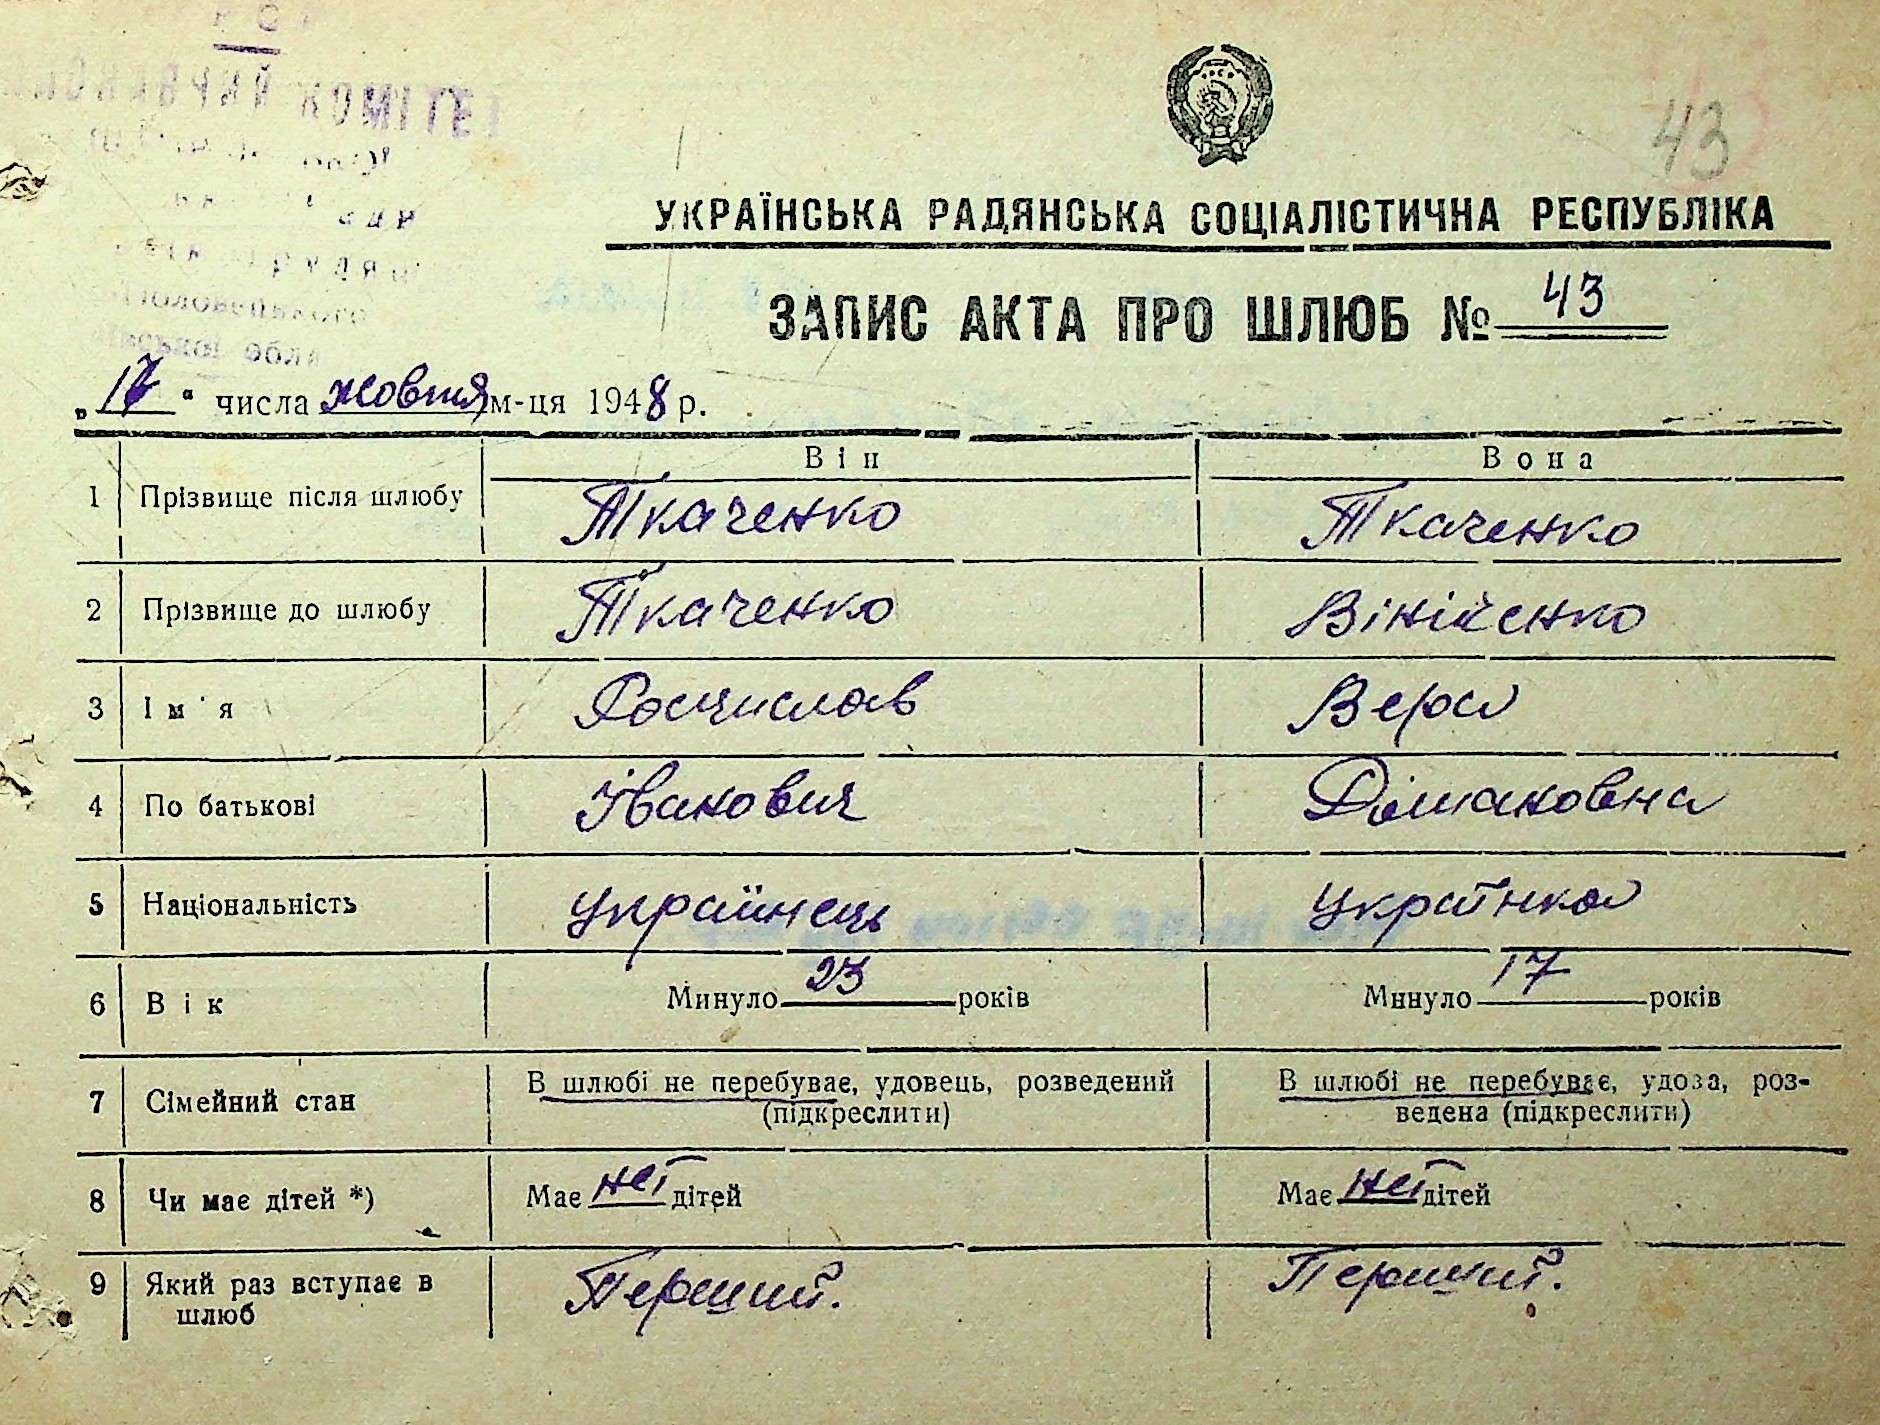 КОМІТЕТ
43
УКРАЇНСЬКА РАДЯНСЬКА СОЦІАЛІСТИЧНА РЕСПУБЛІКА
ЗАПИС АКТА ПРО ШЛЮБ № 43
„17“ числа жовтня м-ця 1948 р.
Він Вона
1 Прізвище після шлюбу Ткаченко Ткаченко
2 Прізвище до шлюбу Ткаченко Вінійченко
3 Ім'я Росчислав Вера
4 По батькові Іванович Дімановна
5 Національність українець українка
6 Вік Минуло 23 років Минуло 17 років
7 Сімейний стан В шлюбі не перебуває, удовець, розведений (підкреслити) В шлюбі не перебуває, удова, роз-
ведена (підкреслити)
8 Чи має дітей *) Має неї дітей Має неї дітей
9 Який раз вступає в шлюб Перший. Перший.